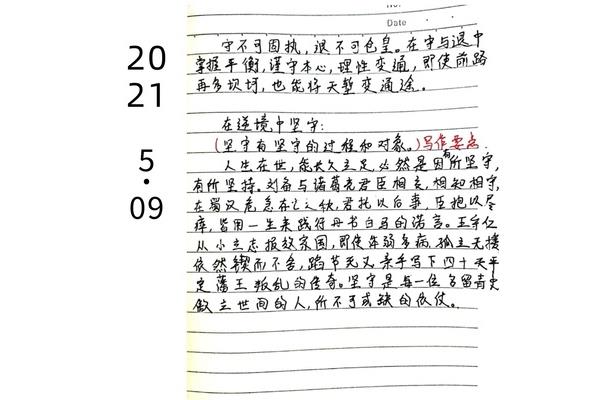 No.
Date
20
21
5
·
09
守不可固执，退不可仓皇。在守与退中
掌握平衡，谨守本心，理性变通，即使前路
再多坎坷，也能将天堑变通途。
在逆境中坚守：
(坚守有坚守的过程和对象。)写作要点
人生在世，能长久立足，必然是因有所坚守，
有所坚持。刘备与诸葛亮君臣相交，相知相守，
在蜀汉危急存亡之秋，君托以后事，臣抱以尽
瘁，皆用一生来践行丹书白马的诺言。王守仁
从小立志报效家国，即使年弱多病，孤立无援
依然锲而不舍，蹈节死义，亲手写下四十天平
定藩王叛乱的传奇。坚守是每一位名留青史
傲立世间的人，所不可或缺的依仗。